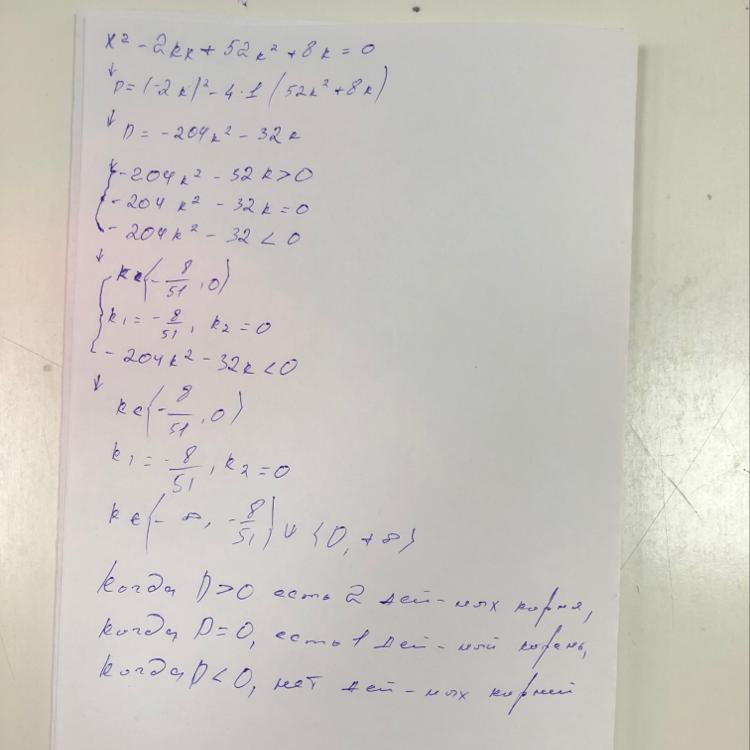 x² - 2kx + 52k² + 8k = 0
↓ D = (-2k)² - 4·1 (52k² + 8k)
↓ D = -204k² - 32k
↓ { -204k² - 32k > 0
- 204k² - 32k = 0
- 204k² - 32 < 0
↓ { k ∈ (-8/51, 0)
k₁ = -8/51, k₂ = 0
- 204k² - 32k < 0
↓ k ∈ (-8/51, 0)
k₁ = -8/51, k₂ = 0
k ∈ (-∞, -8/51) ∪ (0, +∞)
Когда D>0 есть 2 дей-ных корня,
когда D=0, есть 1 дей-ный корень,
когда D<0, нет дей-ных корней